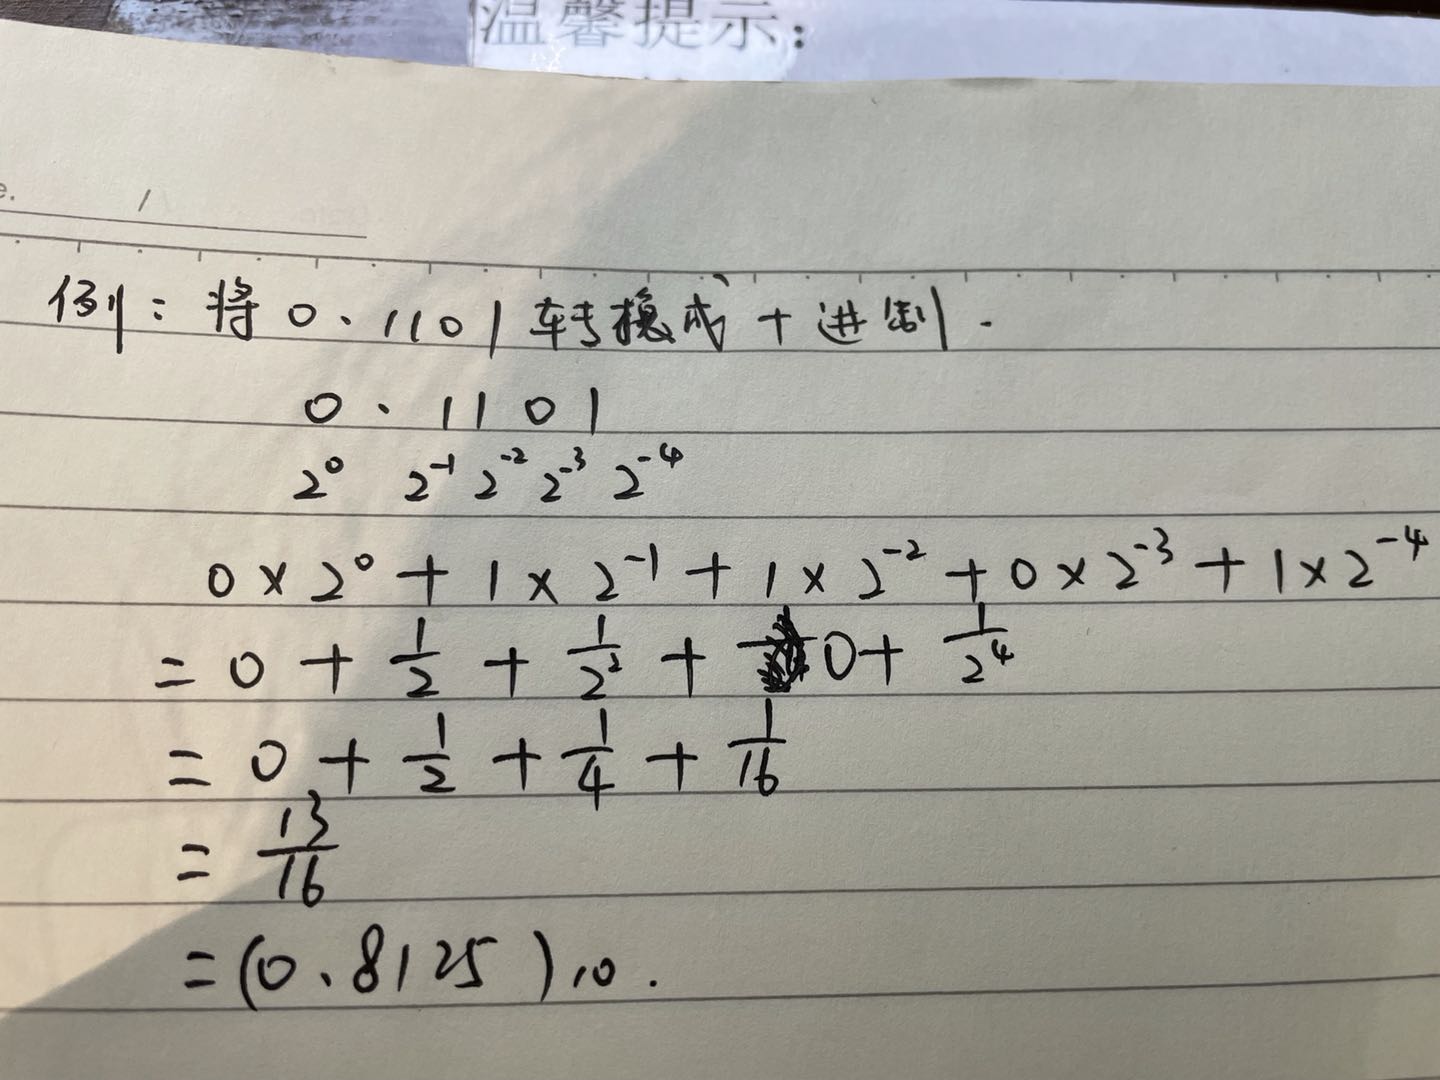 温馨提示:
e. /
例: 将 0.1101 转换成十进制.
0 . 1 1 0 1
2⁰ 2⁻¹ 2⁻² 2⁻³ 2⁻⁴
0 × 2⁰ + 1 × 2⁻¹ + 1 × 2⁻² + 0 × 2⁻³ + 1 × 2⁻⁴
= 0 + 1/2 + 1/2² + 0 + 1/2⁴
= 0 + 1/2 + 1/4 + 1/16
= 13/16
= (0.8125)₁₀.